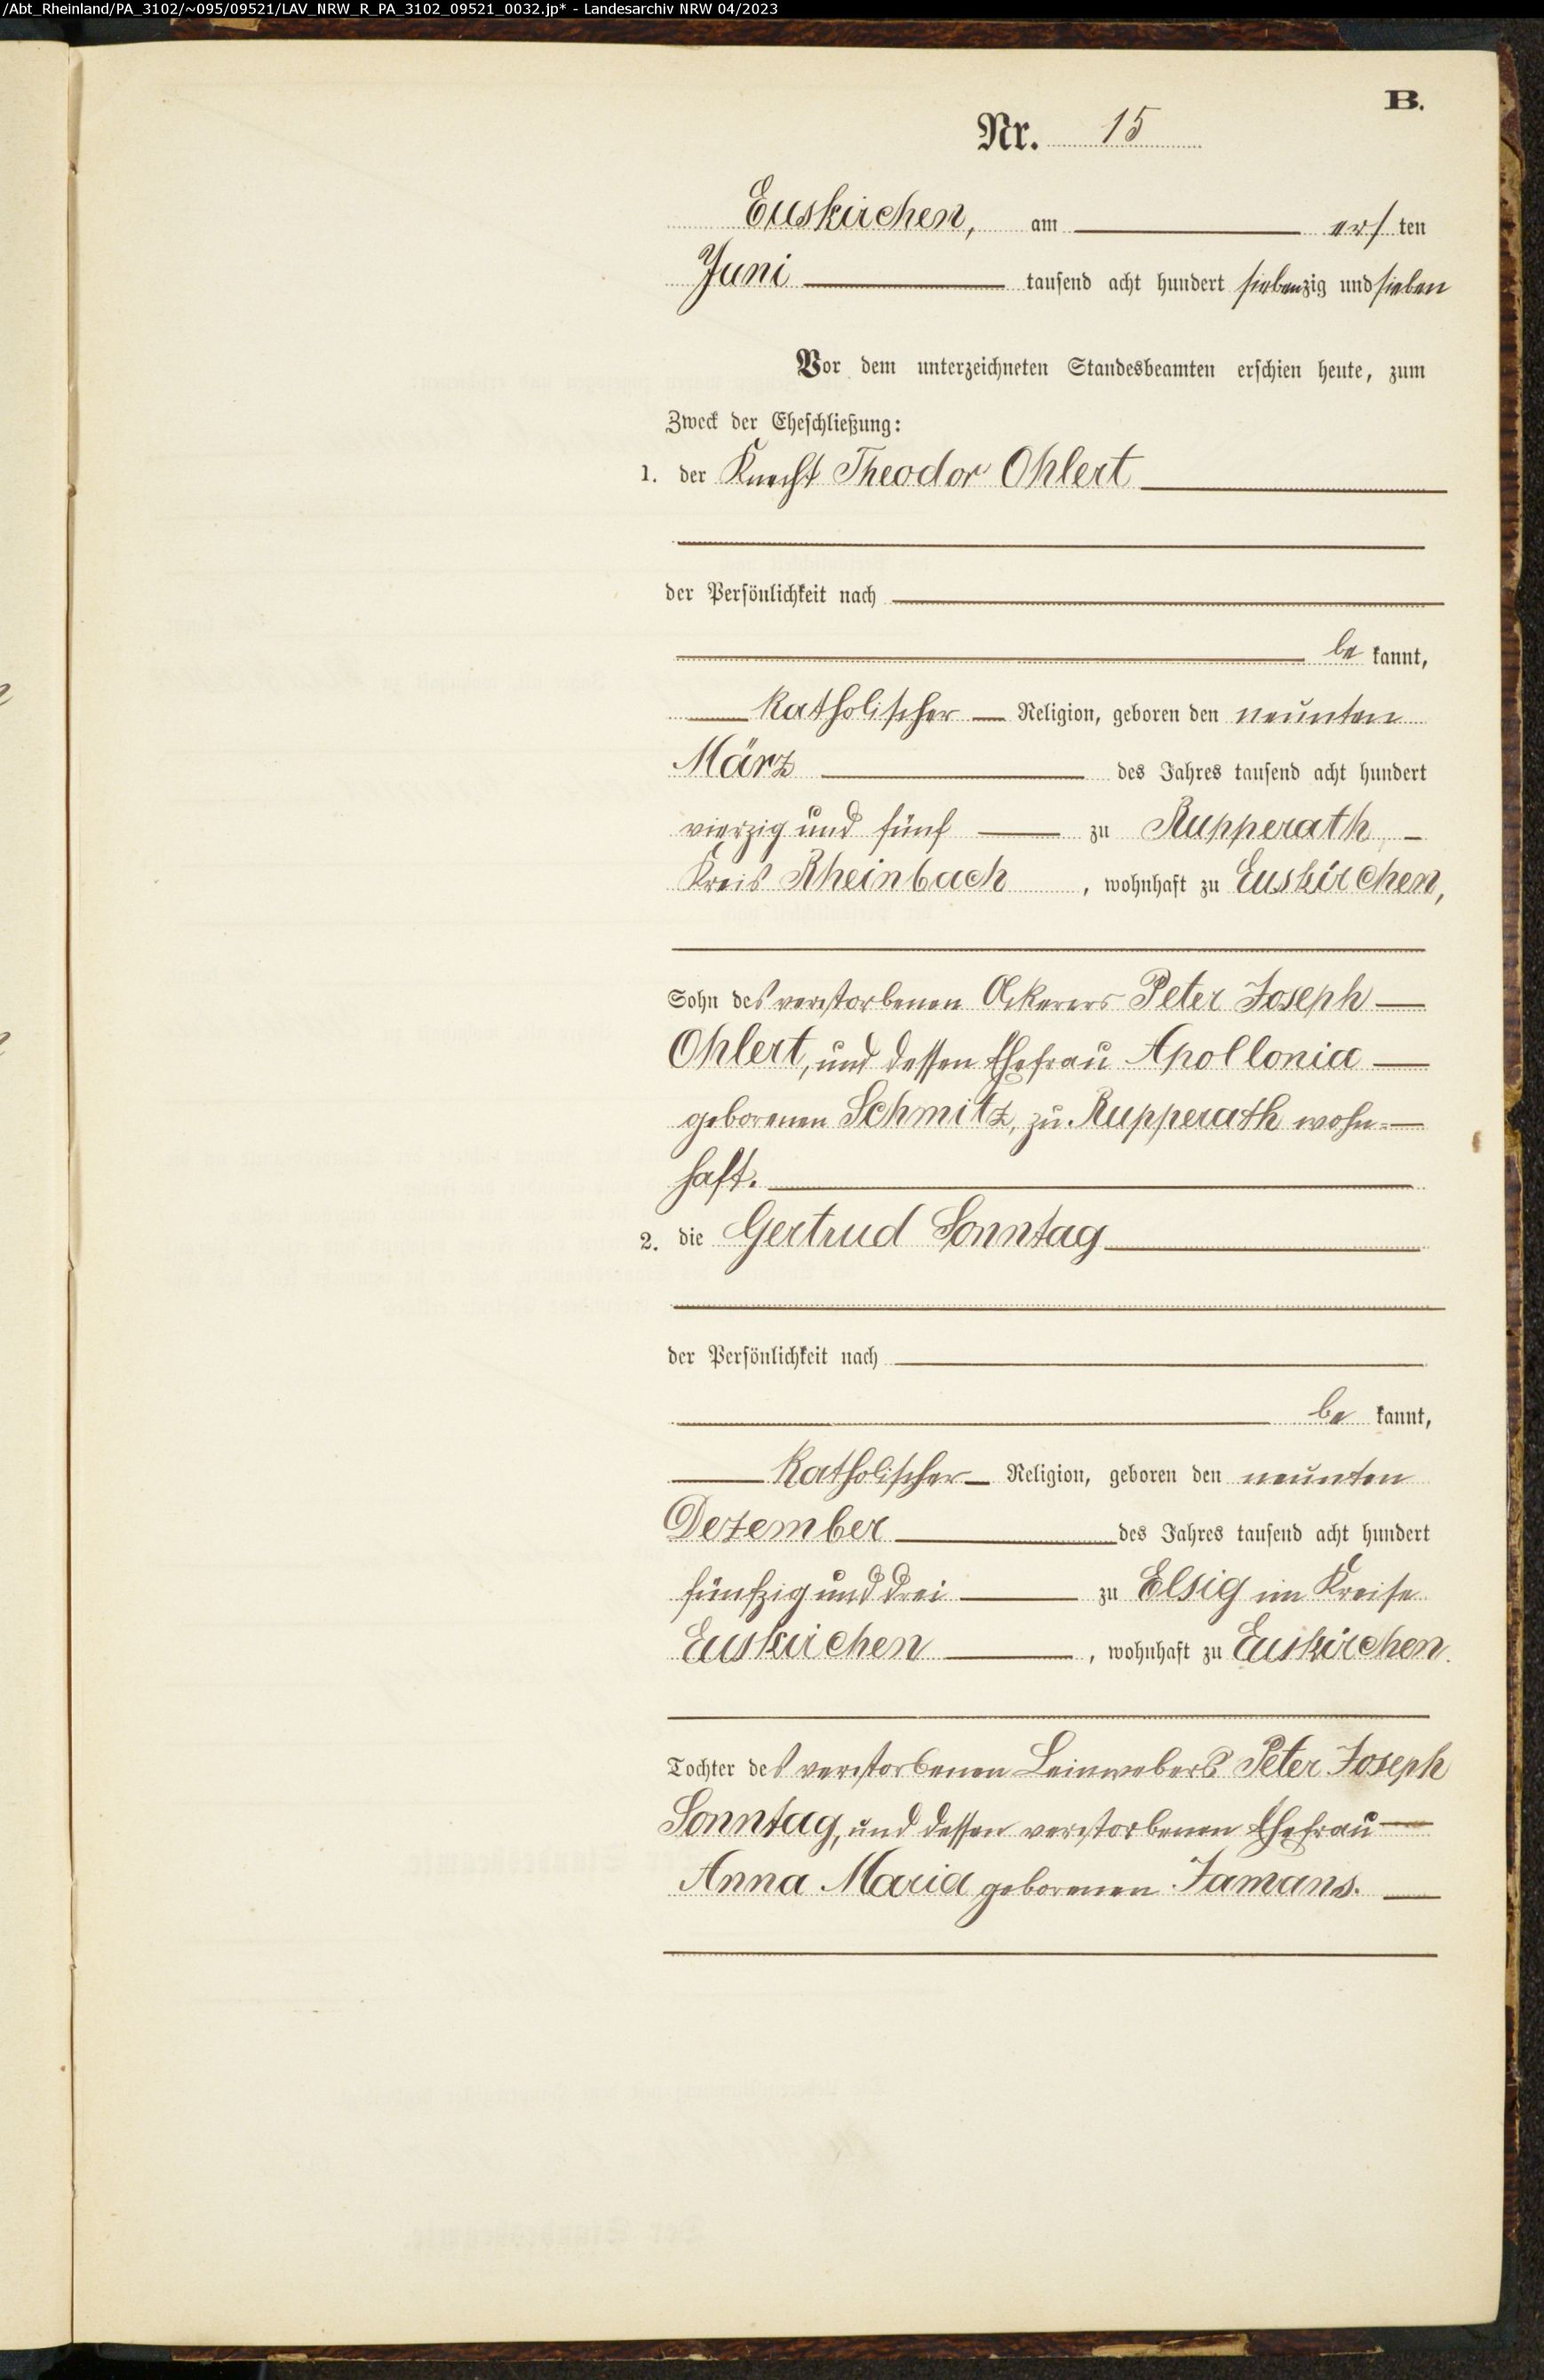 /Abt_Rheinland/PA_3102/~095/09521/LAV_NRW_R_PA_3102_09521_0032.jp* - Landesarchiv NRW 04/2023
B.
Nr. 15
Euskirchen, am ersten
Juni tausend acht hundert siebenzig und sieben
Vor dem unterzeichneten Standesbeamten erschien heute, zum
Zweck der Eheschließung:
1. der Knecht Theodor Ohlert
der Persönlichkeit nach
bekannt,
katholischer Religion, geboren den neunten
März des Jahres tausend acht hundert
vierzig und fünf zu Rupperath
Kreis Rheinbach, wohnhaft zu Euskirchen,
Sohn des verstorbenen Ackerers Peter Joseph
Ohlert, und dessen Ehefrau Apollonia
geborenen Schmitz, zu Rupperath wohn-
haft.
2. die Gertrud Sonntag
der Persönlichkeit nach
bekannt,
katholischer Religion, geboren den neunten
Dezember des Jahres tausend acht hundert
fünfzig und drei zu Elsig im Kreise
Euskirchen, wohnhaft zu Euskirchen.
Tochter des verstorbenen Leinwebers Peter Joseph
Sonntag, und dessen verstorbenen Ehefrau
Anna Maria geborenen Jamans.